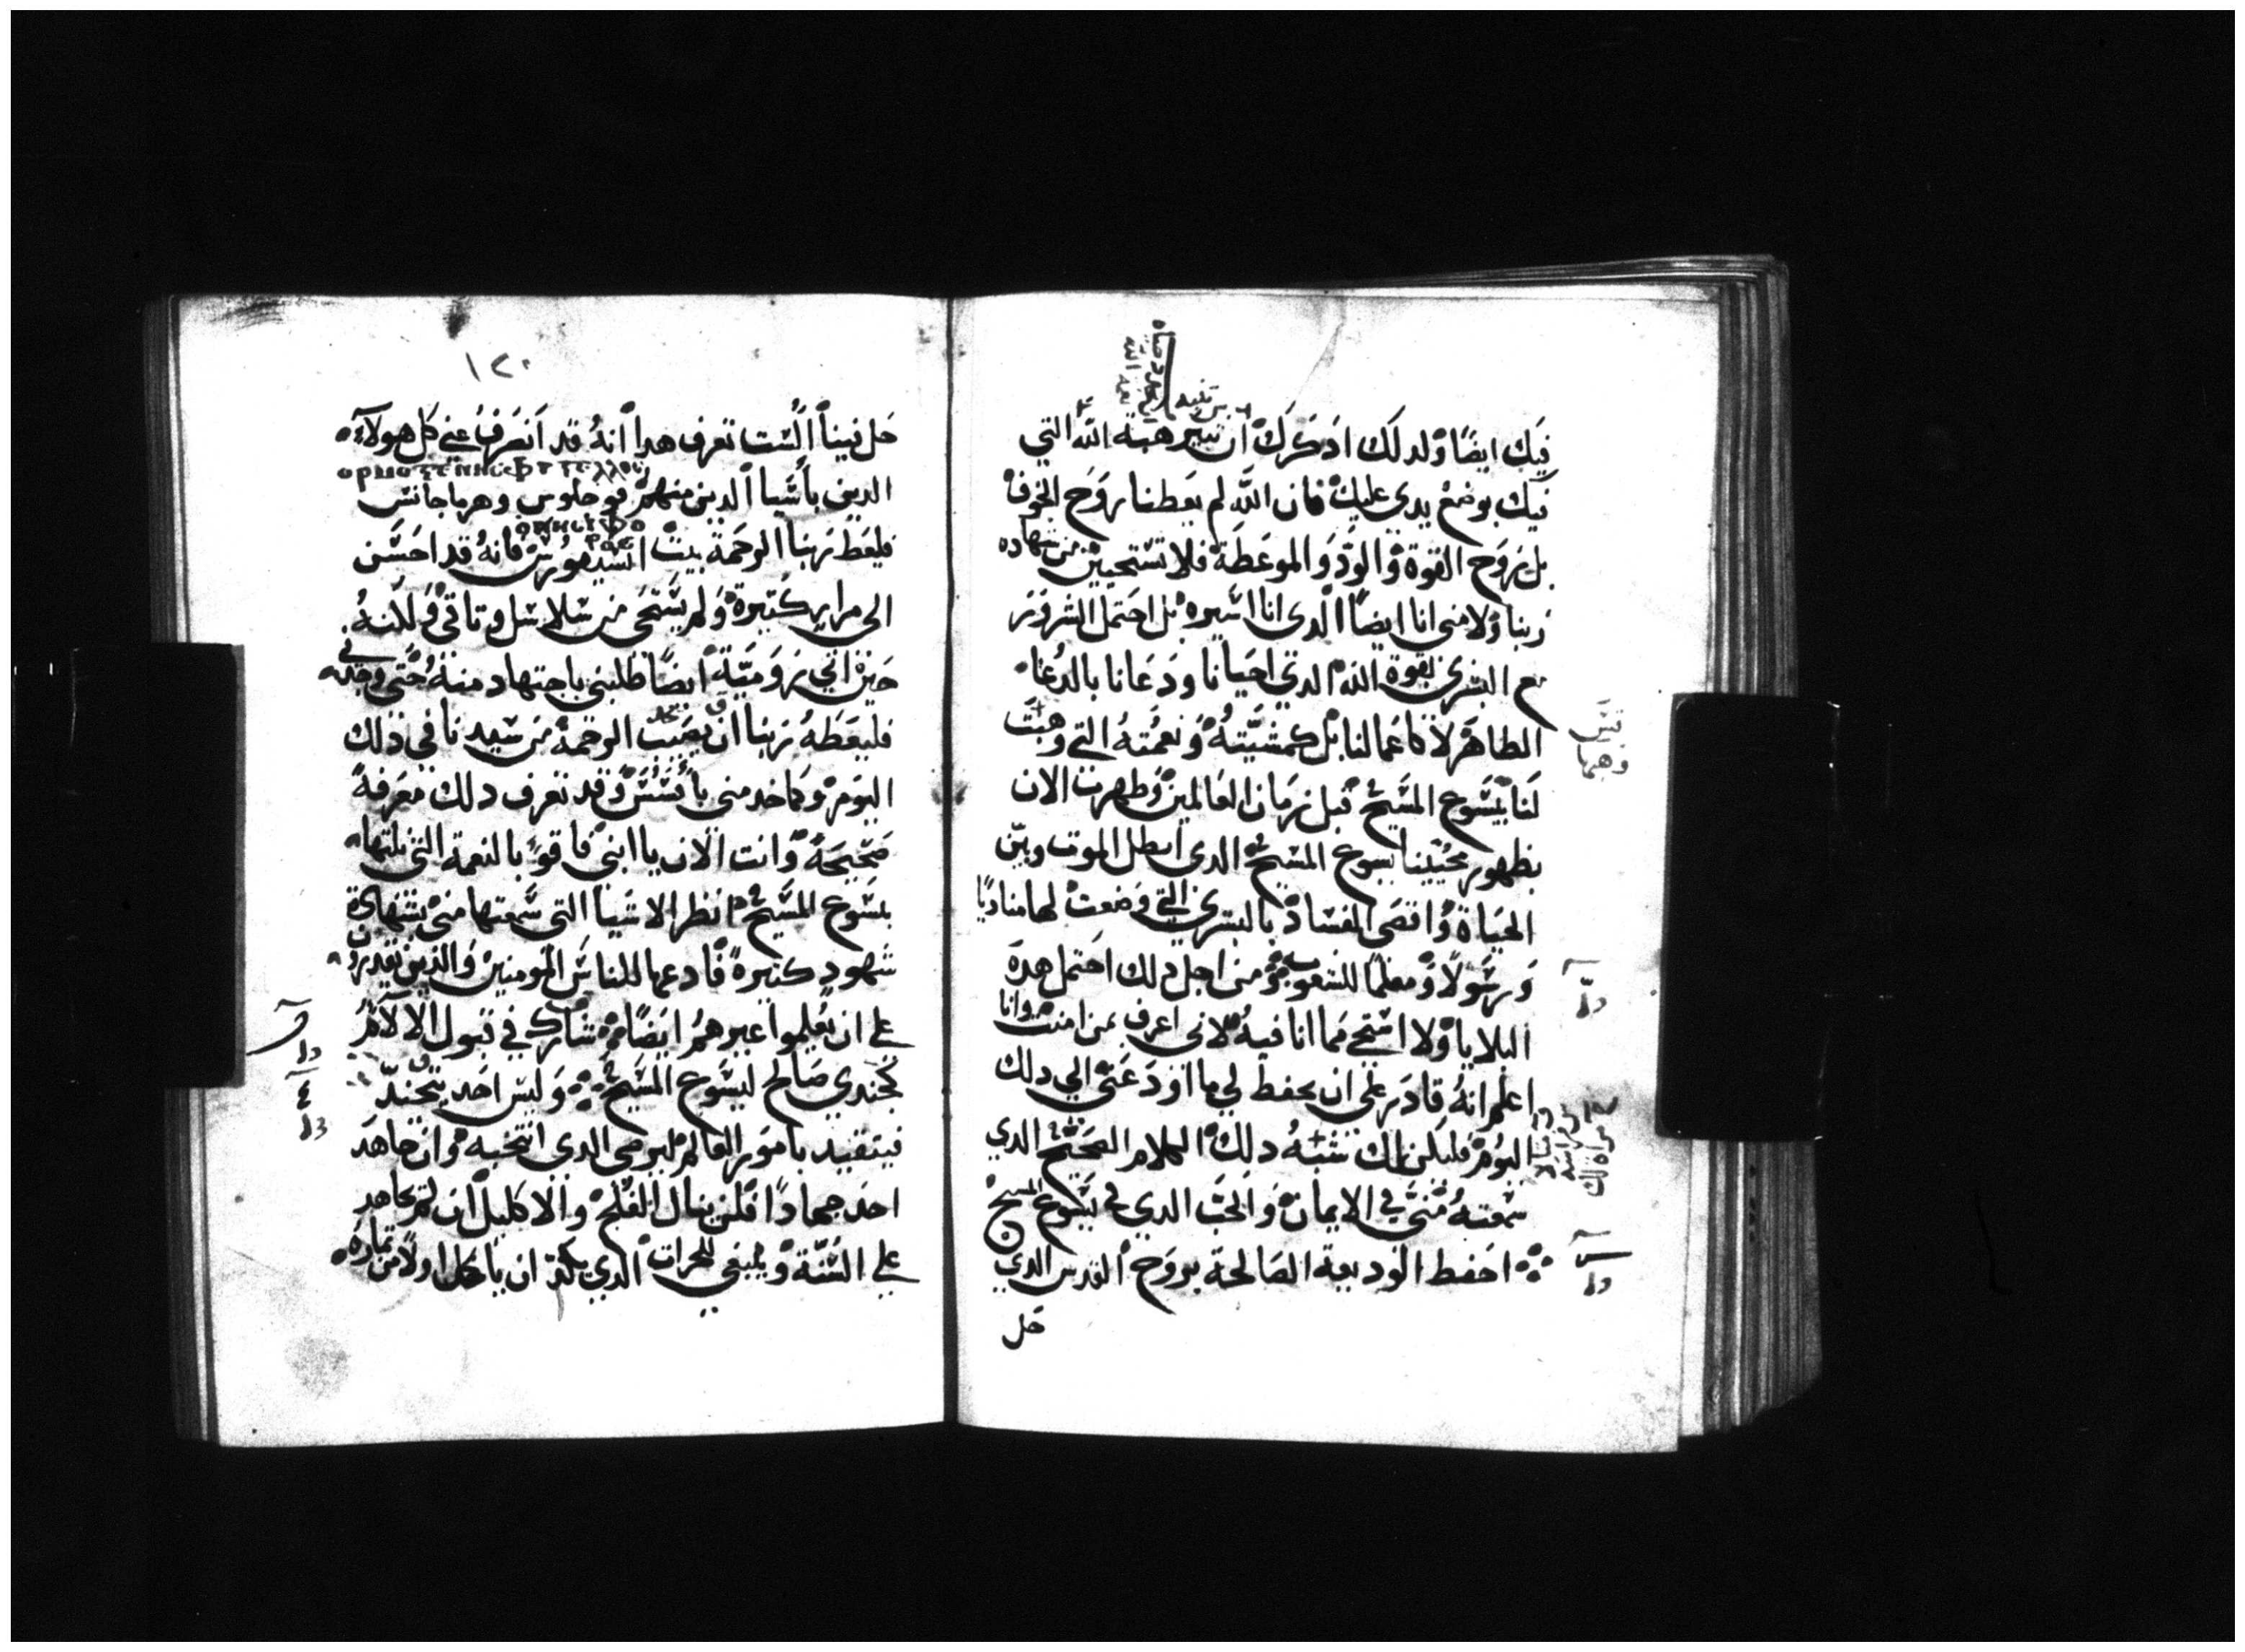 فيك ايضًا ولدلك ادكرك ان تثير هبة الله التي
فيك بوضع يدي عليك فان الله لم يعطنا روح الخوف
بل روح القوة والود والموعظة فلا تستحيين من شهاده
ربنا ولا مني انا ايضًا الدي انا اسيره بل احتمل الشرور
مع البشري بقوة الله الدي احيانا ودعانا بالدعا
الطاهر لا كاعمالنا بل كمشيته ونعمته التي وهبت
لنا بيسوع المسيح قبل زمان العالمين وظهرت الان
بظهور محيينا يسوع المسيح الدي ابطل الموت وبين
الحياة واقصى الفساد بالبشري التي وضعت لها مناديًا
ورسولًا ومعلمًا للشعوب ومن اجل دلك احتمل هده
البلايا ولا استحي مما انا فيه لاني اعرف بمن امنت وانا
اعلم انه قادر على ان يحفظ لي ما اودعني الي دلك
اليوم فليكن لك شبه دلك الكلام الصحيح الدي
سمعته مني في الايمان والحب الدي في يسوع المسيح
احفظ الوديعة الصالحة بروح القدس الدي
حل
١٢٠
حل فينا الست تعرف هدا انه قد انصرف عني كل هولاء
الدين باسيا الدين منهم فوجلوس وهرماجانس
فليعط ربنا الرحمة بيت انسيفورس فانه قد احسن
الي مرار كتيرة ولم يستحى من سلاسل وتاقي ولكنه
حين اتي رومية ايضًا طلبني باجتهاد منه حتى وجدني
فليعطه ربنا ان يصيب الرحمة من سيدنا في دلك
اليوم وكما خدمني بافسس وقد تعرف دلك معرفة
صحيحة وانت الان يا ابني فاقو بالنعمة التي نلتها
بيسوع المسيح انظر الاشيا التي سمعتها مني بشهادة
شهود كتيرة فادعها للناس المومنين والدين يقدرون
على ان يعلموا غيرهم ايضًا شارك في قبول الالام
كجندي صالح ليسوع المسيح وليس احد يتجند
فيتقيد بامور العالم ليرضي الدي انتخبه وان جاهد
احد جهادًا فلن ينال الفلج والاكليل ان لم يجاهد
على السنة وينبغي للحرات الدي يكد ان ياكل اولًا من تماره